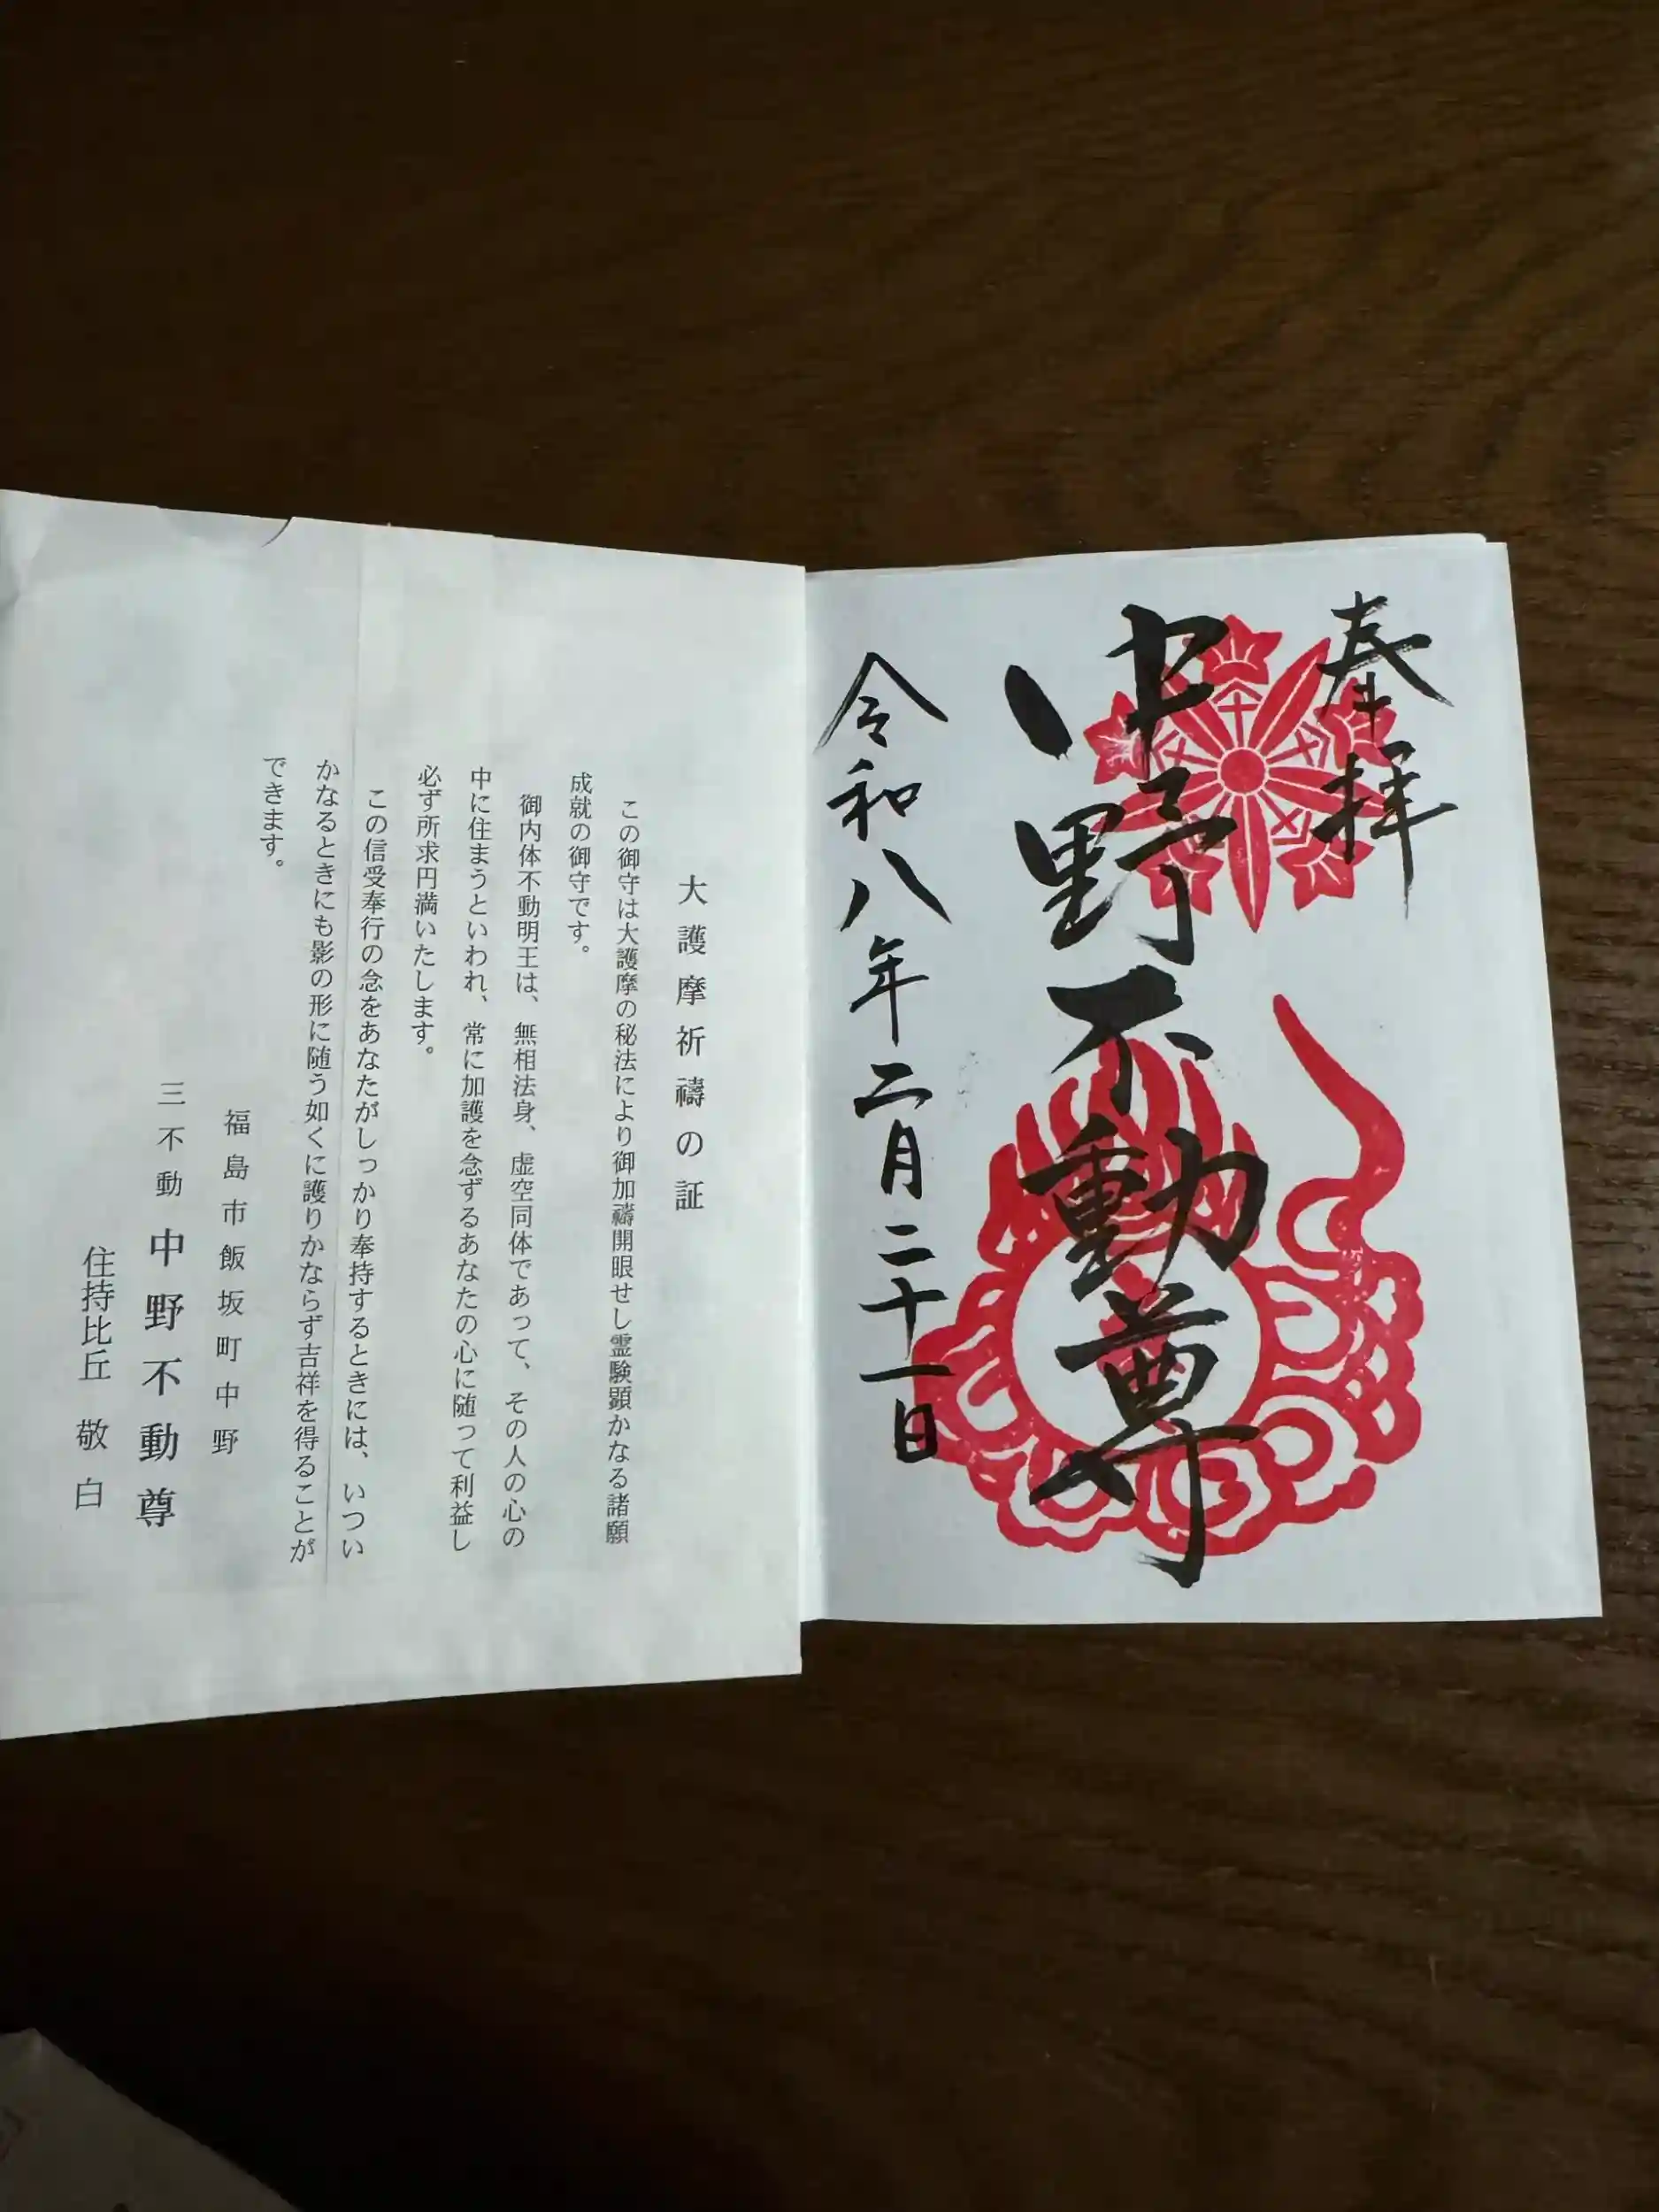 奉拝
中野不動尊
令和八年二月二十一日
大護摩祈禱の証
この御守は大護摩の秘法により御加禱開眼せし霊験顕かなる諸願
成就の御守です。
御内体不動明王は、無相法身、虚空同体であって、その人の心の
中に住まうといわれ、常に加護を念ずるあなたの心に随って利益し
必ず所求円満いたします。
この信受奉行の念をあなたがしっかり奉持するときには、いつい
かなるときにも影の形に随う如くに護りかならず吉祥を得ることが
できます。
福島市飯坂町中野
三不動 中野不動尊
住持比丘 敬白